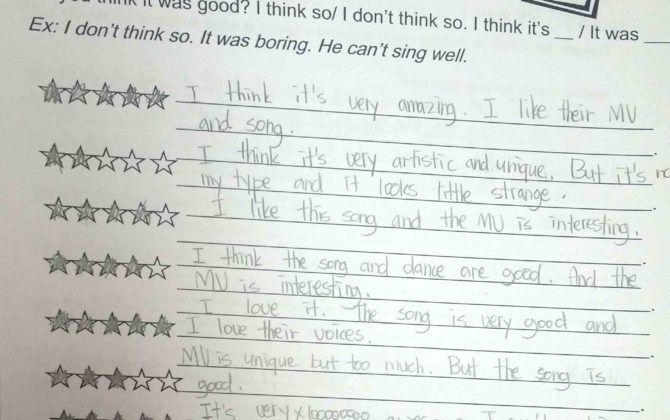 think it was good? I think so/ I don't think so. I think it's __ / It was __
Ex: I don't think so. It was boring. He can't sing well.
I think it's very amazing. I like their MV
and song.
I think it's very artistic and unique. But it's
my type and it looks little strange.
I like this song and the MV is interesting.
I think the song and dance are good. And the
MV is interesting.
I love it. The song is very good and
I love their voices.
MV is unique but too much. But the song is
good.
It's very